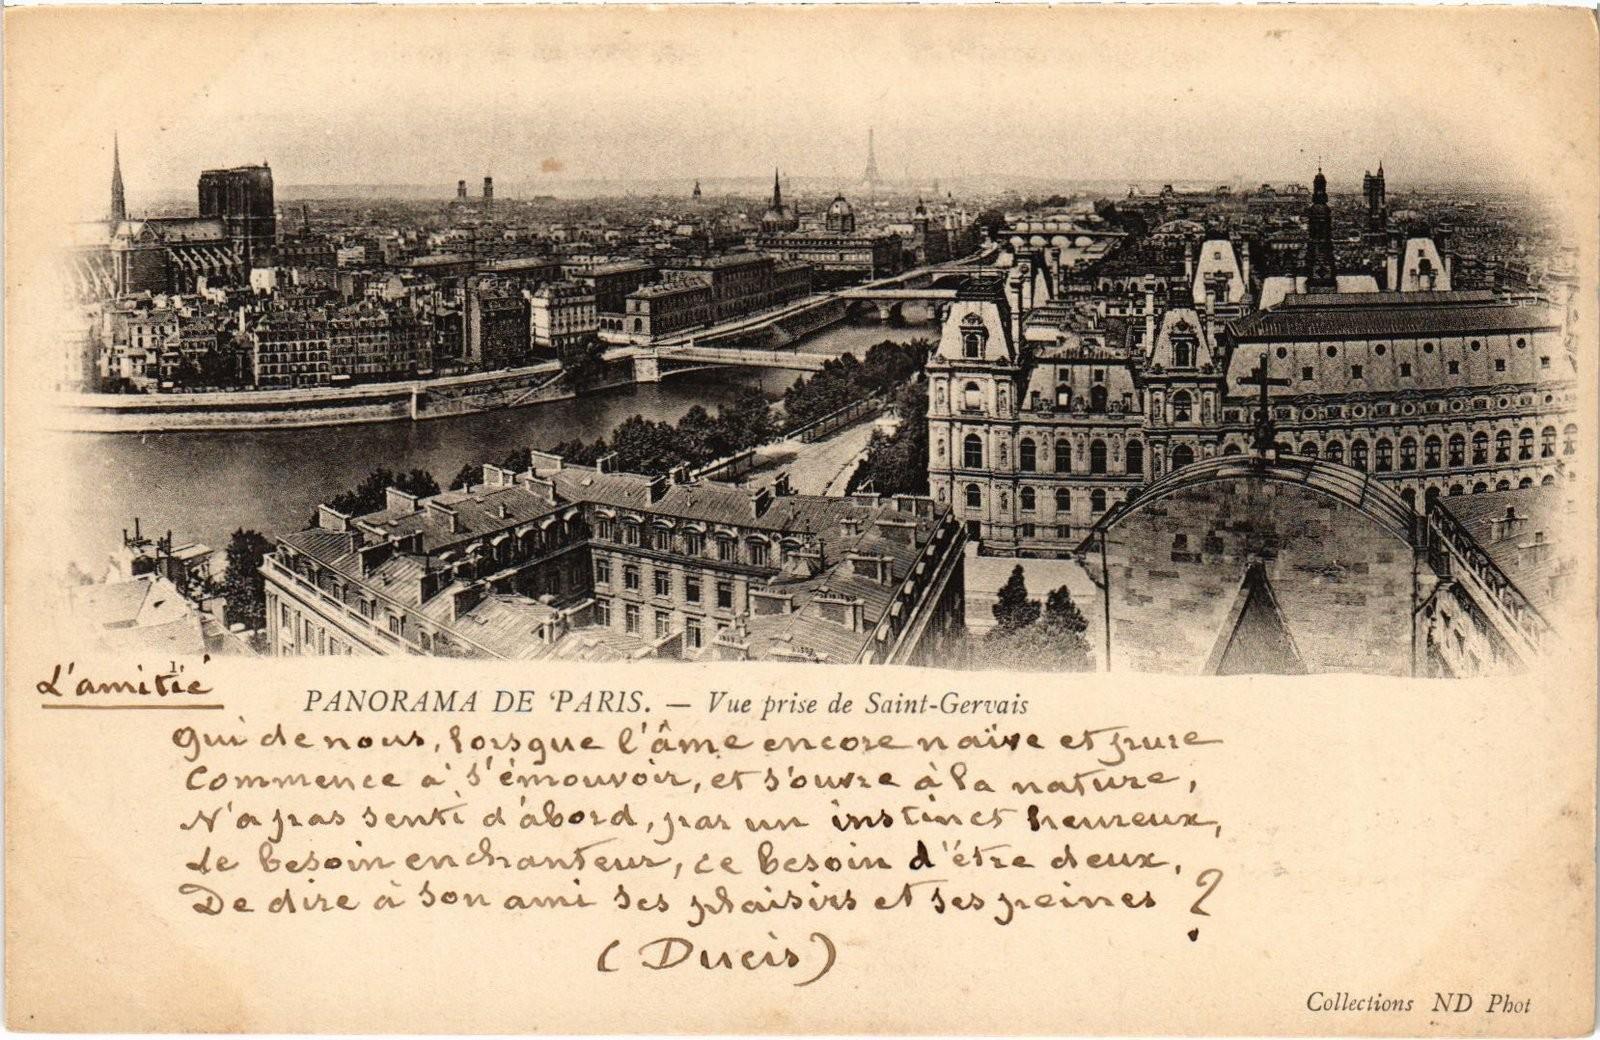 L'amitié
1.
PANORAMA DE PARIS. — Vue prise de Saint-Gervais
Qui de nous, lorsque l'âme encore naïve et pure
Commence à s'émouvoir, et s'ouvre à la nature,
N'a pas senti d'abord, par un instinct heureux,
Le besoin enchanteur, ce besoin d'être deux,
De dire à son ami ses plaisirs et ses peines ?
(Ducis)
Collections ND Phot